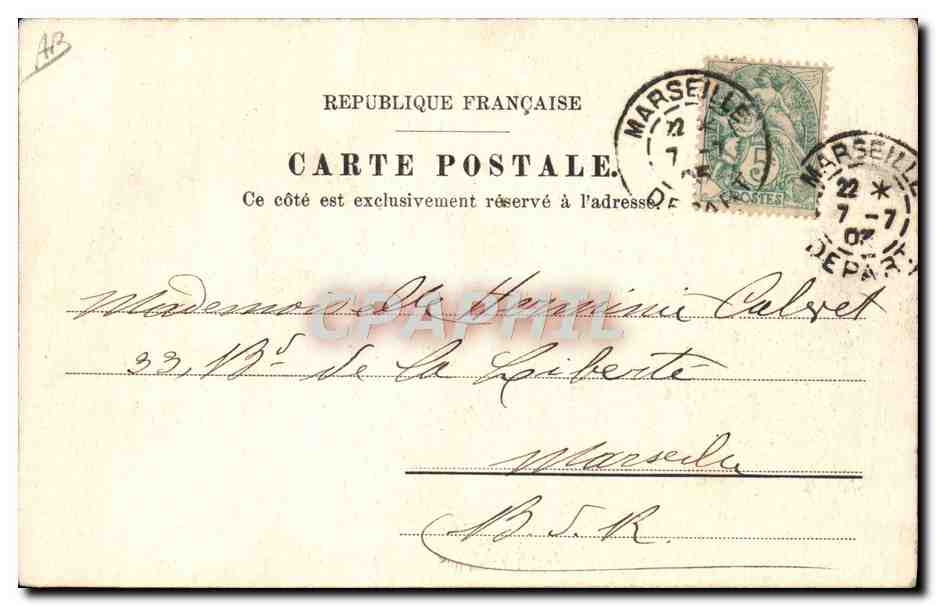 AB
REPUBLIQUE FRANÇAISE
CARTE POSTALE.
Ce côté est exclusivement réservé à l'adresse.
MARSEILLE
22
7
DEPART
5
POSTES
MARSEILLE
22 *
7 -7
03
DEPAR
CPAPHIL
Mademoiselle Herminie Calvet
33, Bd de la Liberté
Marseille
B. d. R.